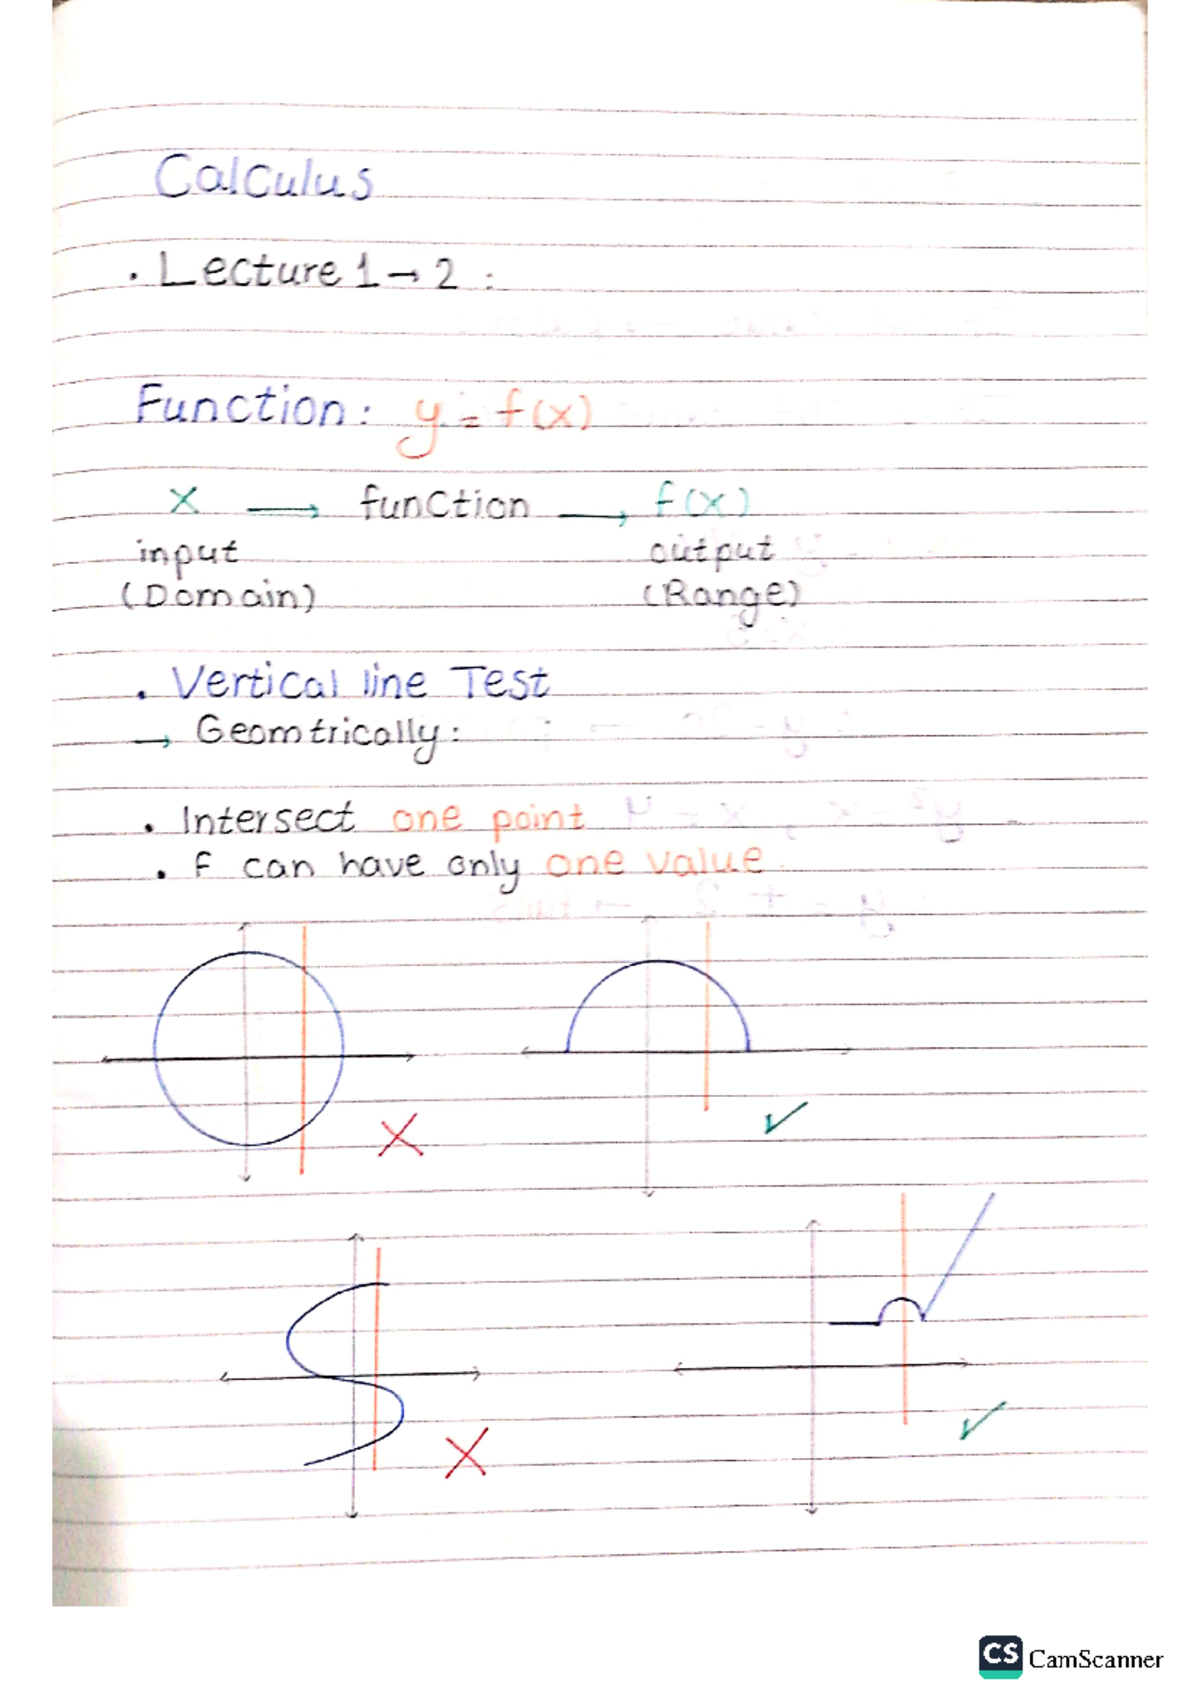 Calculus
. Lecture 1 → 2 :
Function: y = f(x)
x → function → f(x)
input output
(Domain) (Range)
. Vertical line Test
→ Geomtrically:
. Intersect one point
. f can have only one value
CS CamScanner